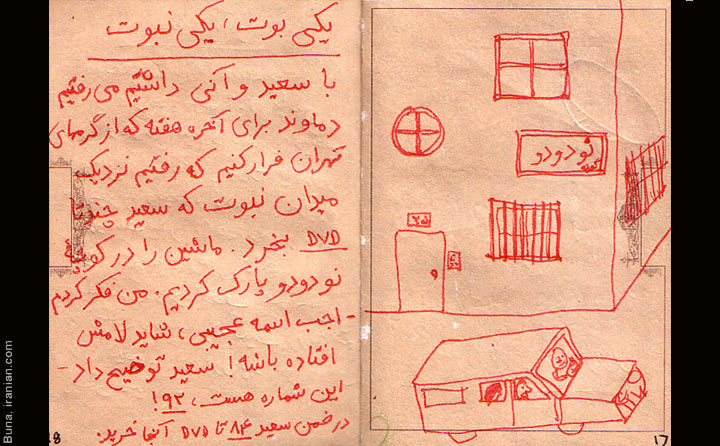 یکی بوت، یکی نبوت
با سعید و آنی داشتیم می رفتیم
دماوند برای آخره هفته که از گرمای
تهران فرار کنیم که رفتیم نزدیک
میدان نبوت که سعید چند تا
DVD بخرد. ماشین را در کوچهٔ
نودودو پارک کردیم. من فکر کردم
- اجب اسمه عجیبی، شاید لامش
افتاده باشه! سعید توضیح داد -
این شماره هست، ۹۲!
در ضمن سعید ۸۴ تا DVD آنجا خرید.
نودودو
17
Buna, iranian.com